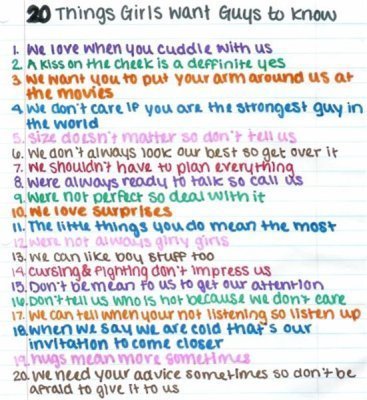 20 Things Girls Want Guys to Know
1. We love when you cuddle with us
2. A kiss on the cheek is a deffinite yes
3. We want you to put your arm around us at
the movies
4. We don't care if you are the strongest guy in
the world
5. Size doesn't matter so don't tell us
6. We don't always look our best so get over it
7. We shouldn't have to plan everything
8. We're always ready to talk so call us
9. We're not perfect so deal with it
10. We love surprises
11. The little things you do mean the most
12. We're not always girly girls
13. We can like boy stuff too
14. Cursing & fighting don't impress us
15. Don't be mean to us to get our attention
16. Don't tell us who is hot because we don't care
17. We can tell when your not listening so listen up
18. When we say we are cold that's our
invitation to come closer
19. Hugs mean more sometimes
20. We need your advice sometimes so don't be
afraid to give it to us